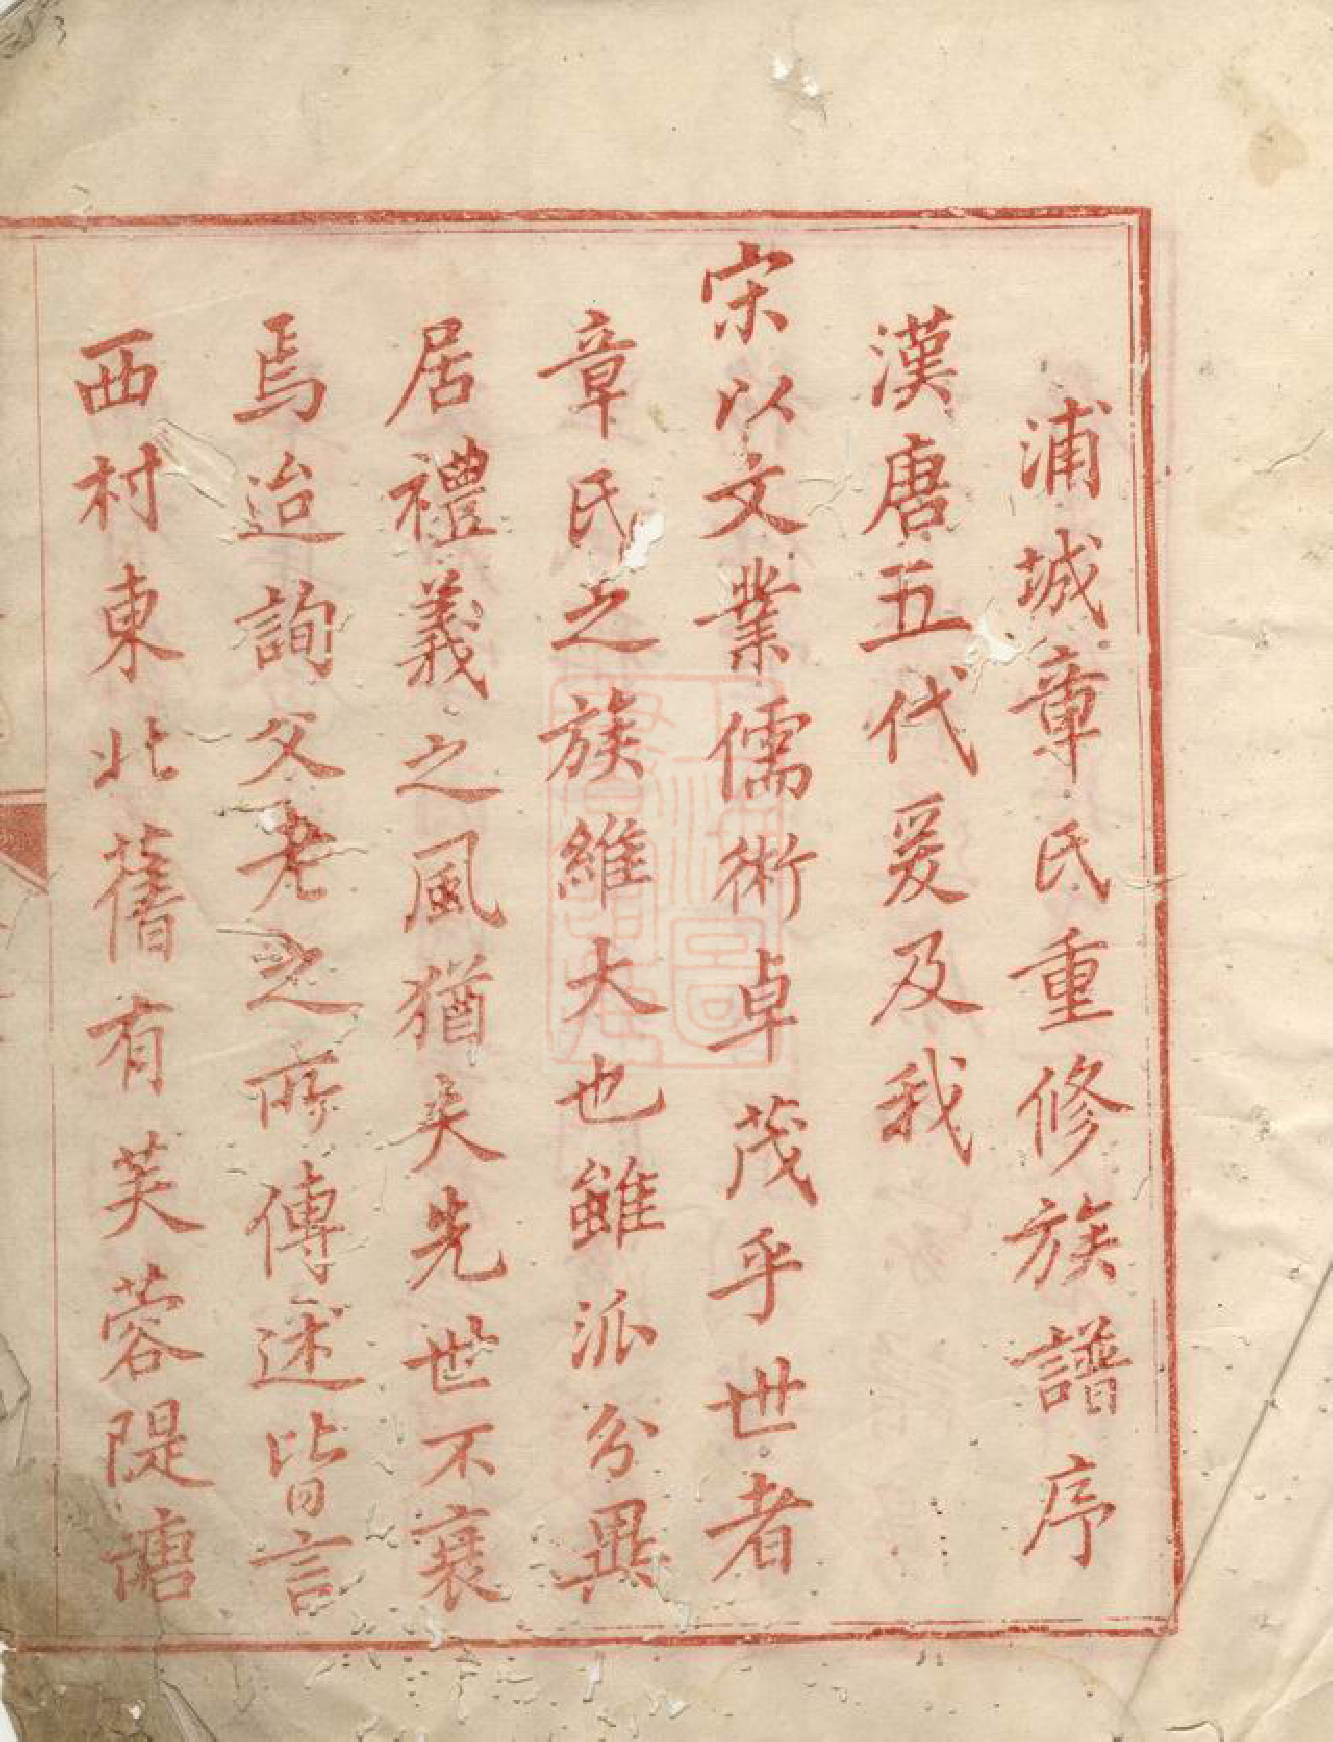 浦城章氏重修族譜序
漢唐五代爰及我
宋以文業儒術卓茂乎世者
章氏之族維大也雖派分異
居禮義之風猶夫先世不衰
焉迨詢父老之所傳述皆言
西村東北舊有芙蓉隄塘
上海圖
書館藏